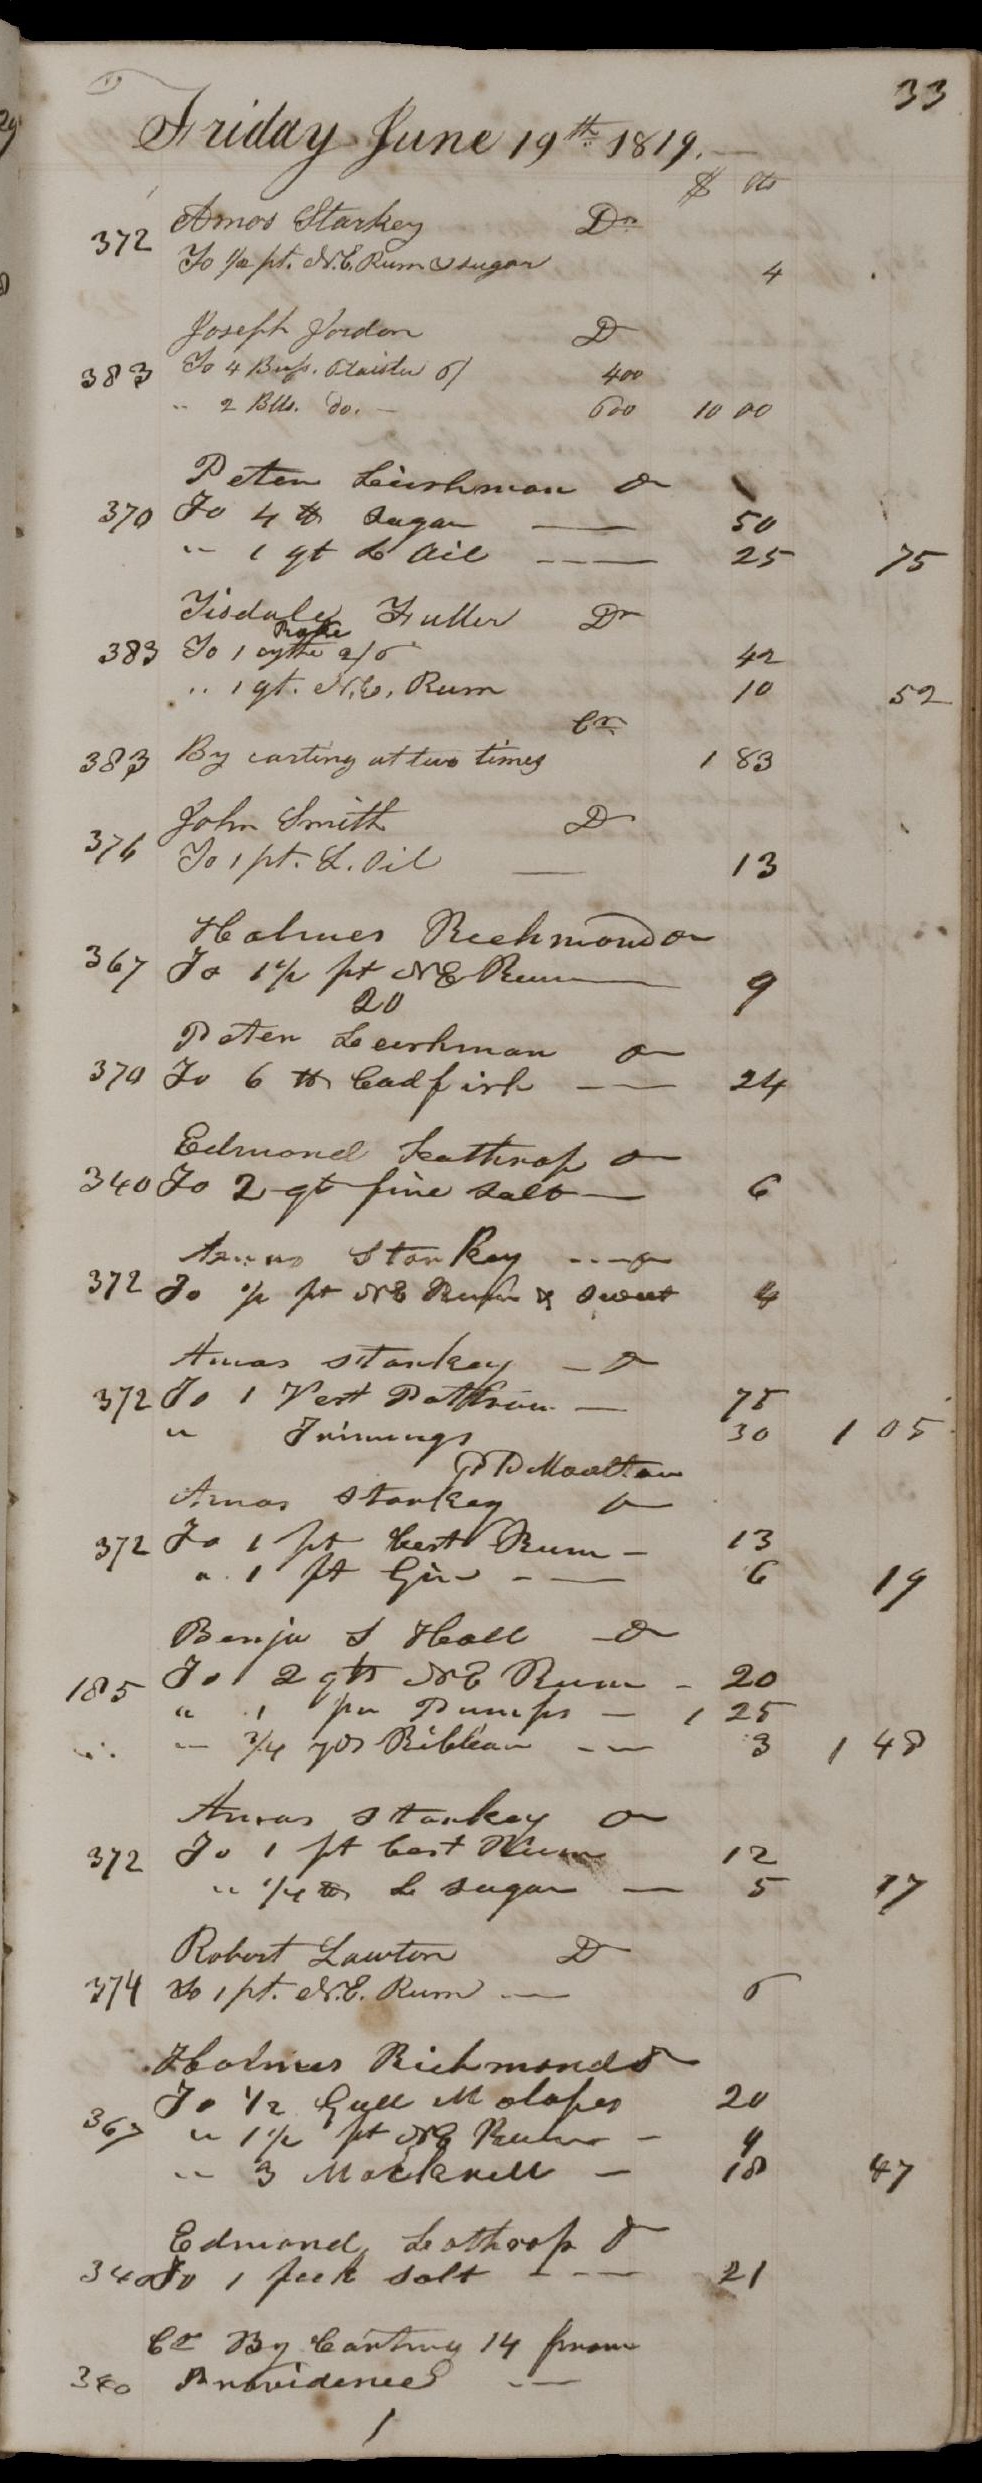 33
Friday June 19th 1819.
$ cts
Amos Starkey Dr
372 To 1/2 pt. N.E. Rum & sugar 4
Joseph Jordon D
383 To 4 6/ 400
" 2 Bbls. do. — 600 10 00
Peter Leushman D
370 To 4 lb Sugar — 50
" 1 qt L Oil — 25 75
Tisdale Fuller Dr
Rake
383 To 1 2/6 42
" 1 qt. N.E. Rum 10 52
Cr
383 By carting at two times 1 83
John Smith D
376 To 1 pt. L. Oil — 13
Holmes Richmond D
367 To 1 1/2 pt N E Rum — 9
20
Peter Leushman D
370 To 6 lb Codfish — 24
Edmond Leothrop D
340 To 2 qt fine salt — 6
Amos Starkey — D
372 To 1/2 pt N E Rum & Sweet 4
Amos Starkey — D
372 To 1 Vest Pattern — 75
" Trimings 30 1 05
P D Moulton
Amos Starkey D
372 To 1 pt best Rum — 13
" 1 pt Gin — 6 19
Benja S Hall — D
185 To 2 qts N E Rum — 20
" 1 pr Pumps — 1 25
" 3/4 yds Ribban — 3 1 48
Amos Starkey D
372 To 1 pt best Rum 12
" 1/4 lb L sugar — 5 17
Robert Lawton D
374 To 1 pt. N.E. Rum — 6
Holmes Richmond D
To 1/2 Gall Molases 20
367 " 1 1/2 pt N E Rum — 9
" 3 Mackrell — 18 47
Edmond Lothrop D
340 To 1 peck salt — 21
Cr By Carting 14 from
340 Providence —
1